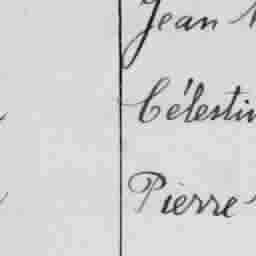 Jean
Célestin
Pierre